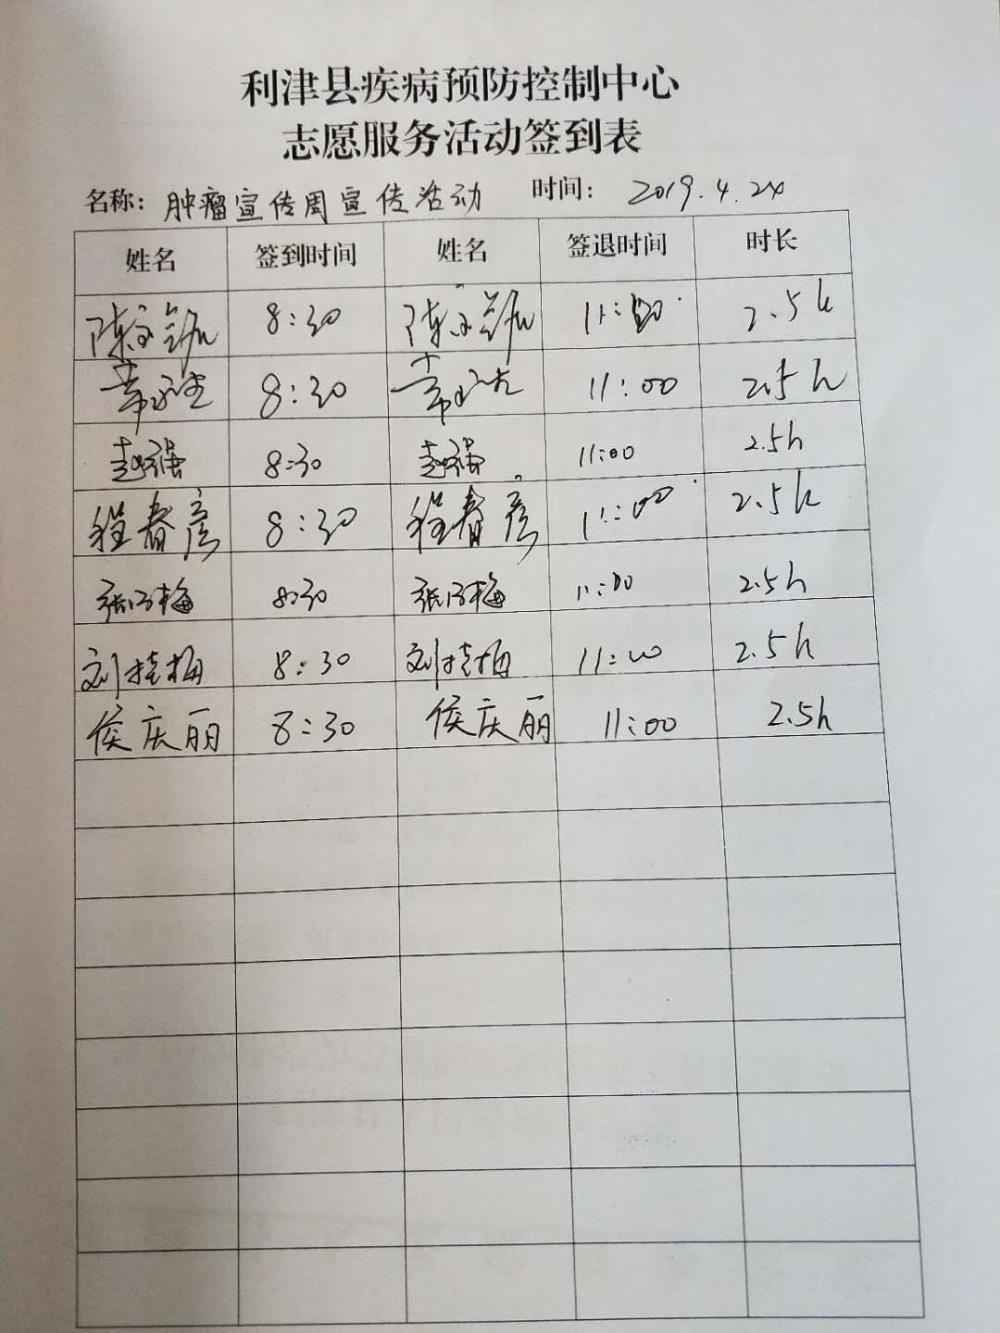 利津县疾病预防控制中心
志愿服务活动签到表
名称：肿瘤宣传周宣传活动 时间：2019.4.24
姓名 签到时间 姓名 签退时间 时长
陈 8:30 陈 11:00 2.5h
8:30 11:00 2.5h
赵强 8:30 赵强 11:00 2.5h
程春彦 8:30 程春彦 11:00 2.5h
张 梅 8:30 张 梅 11:00 2.5h
刘桂梅 8:30 刘桂梅 11:00 2.5h
侯庆丽 8:30 侯庆丽 11:00 2.5h